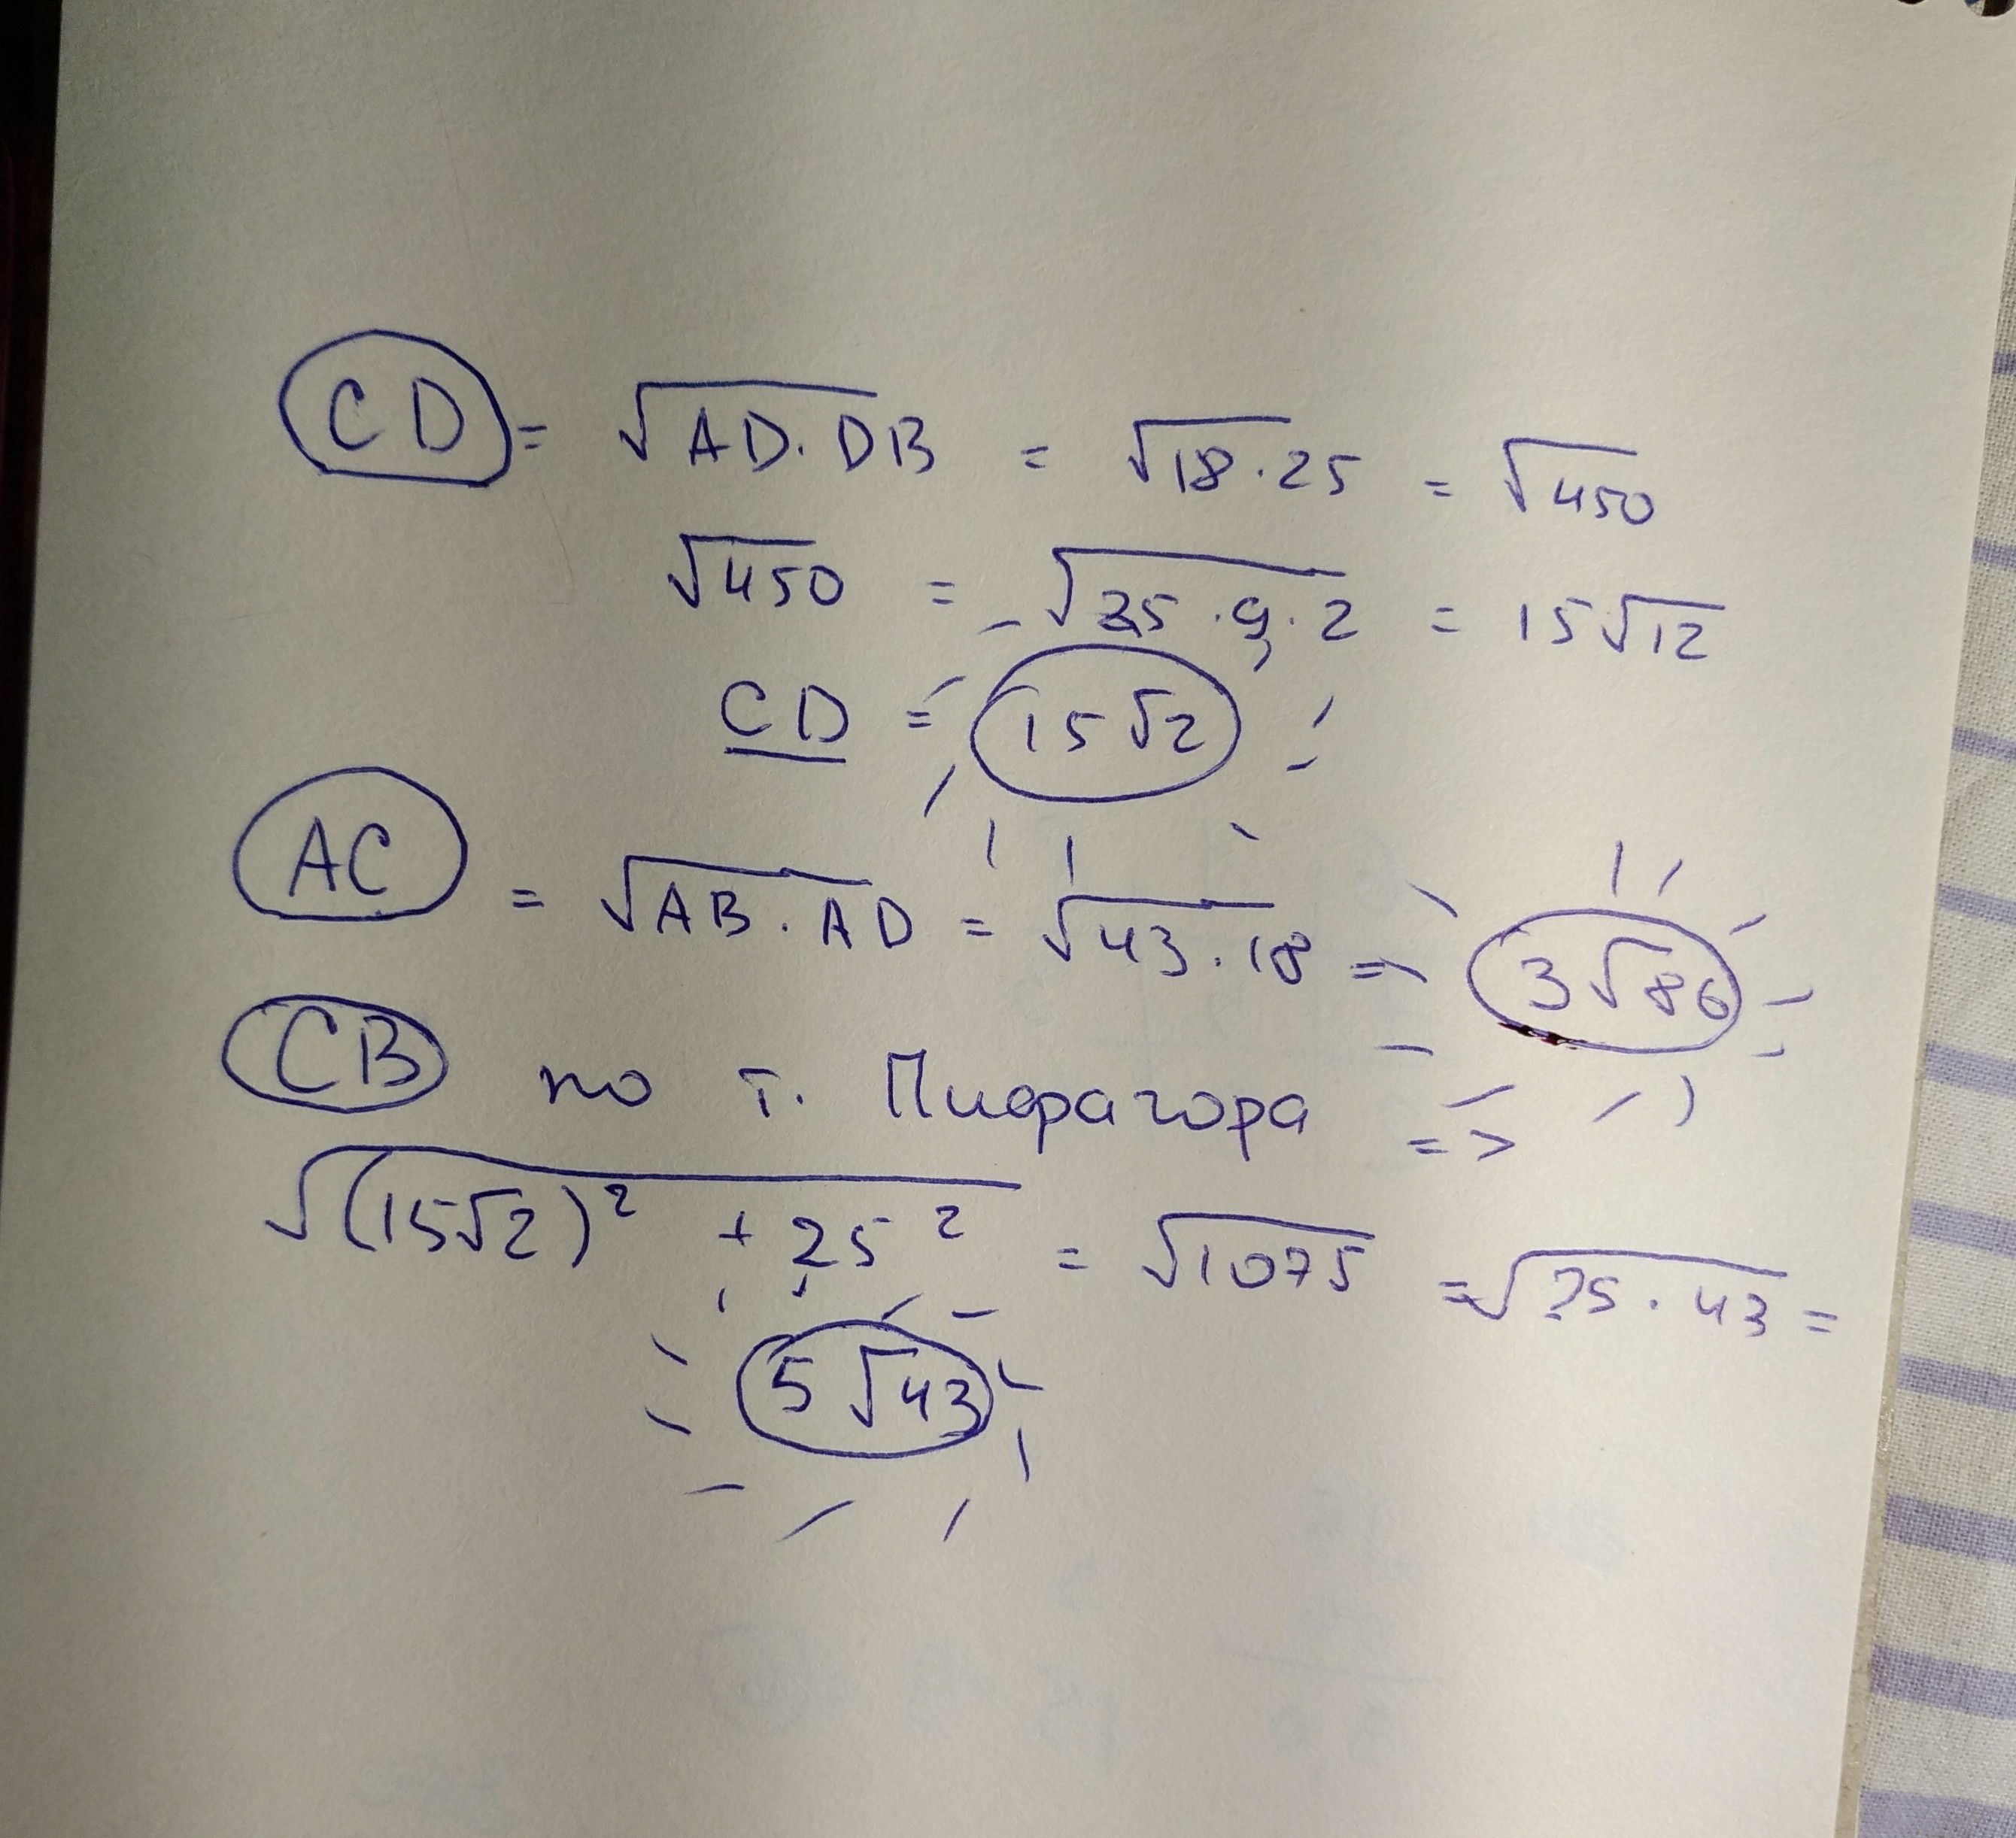 CD = √AD·DB = √18·25 = √450
√450 = √25·9·2 = 15√12
CD = 15√2
AC = √AB·AD = √43·18 = 3√86
CB по т. Пифрагора =>
√(15√2)² + 25² = √1075 = √25·43 =
5√43